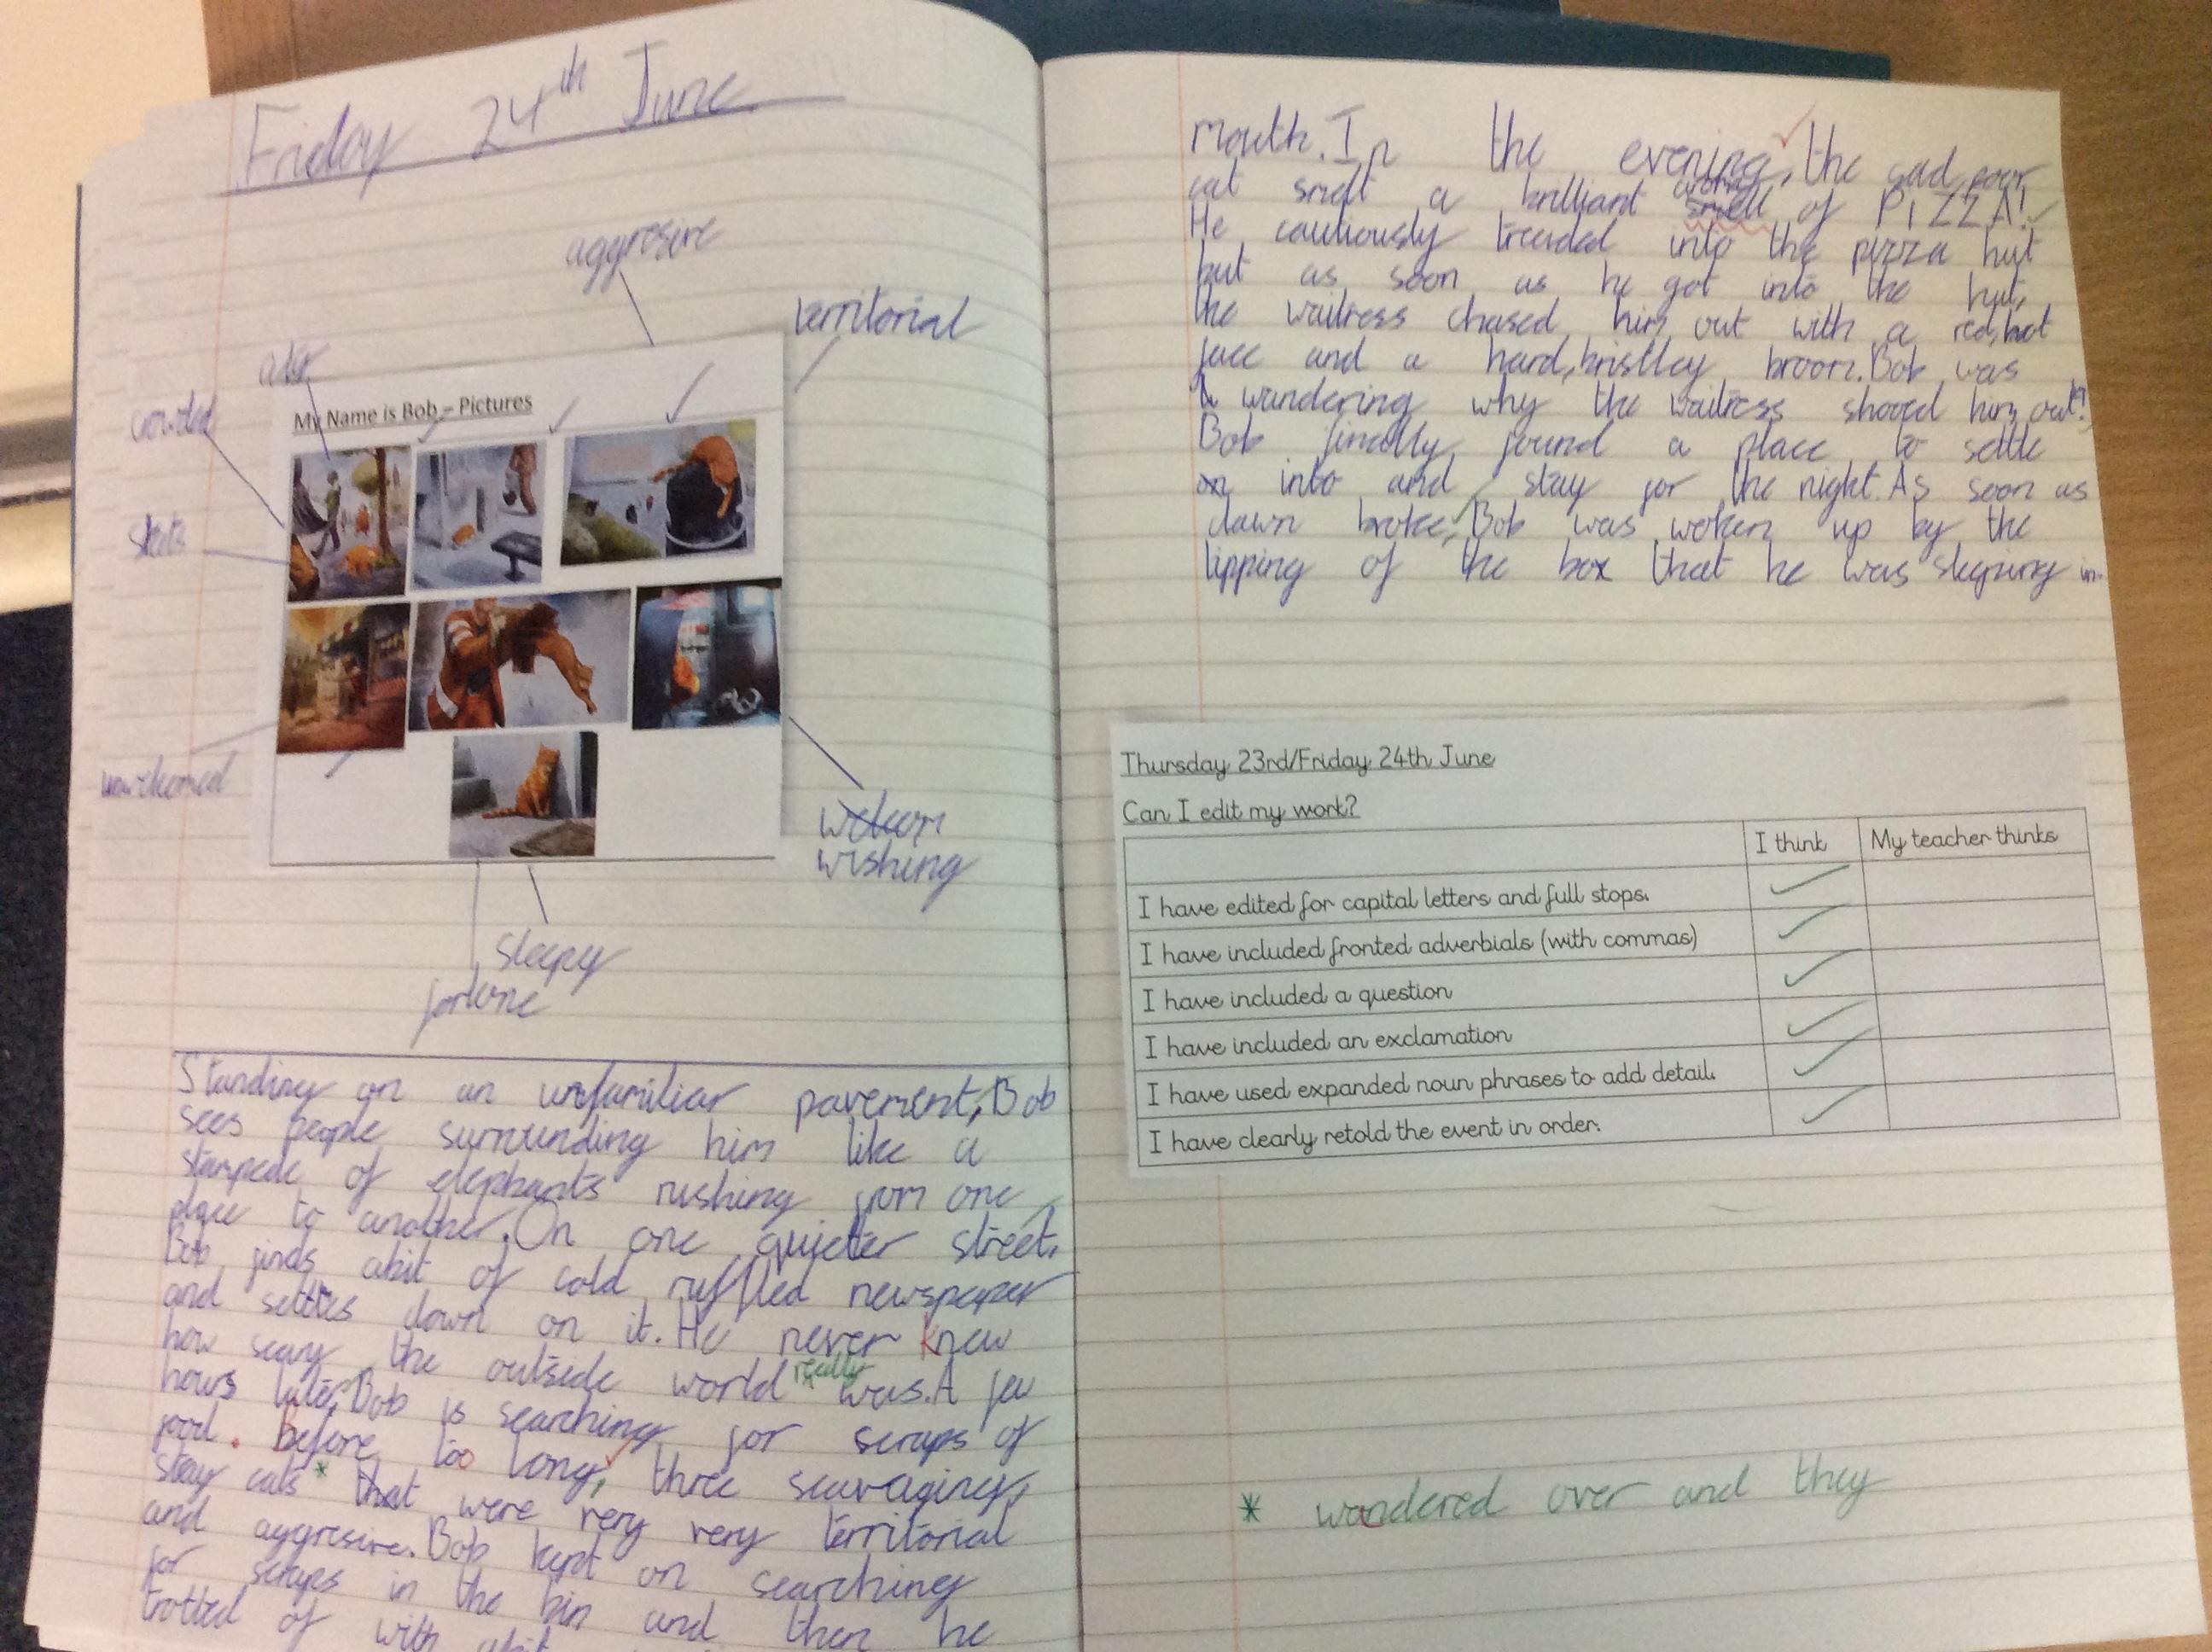 Friday 24th June
aggresive
territorial
crowded
My Name is Bob – Pictures
unwelcomed
wishing
sleepy
Standing on an unfamiliar pavement, Bob
sees people surrunding him like a
stampede of elephants rushing from one
place to another. On one quieter street,
Bob finds abit of cold ruffled newspaper
and settles down on it. He never knew
how scary the outside world really was. A few
hours later, Bob is searching for scraps of
food. Before too long, three scavaging,
stray cats * that were very very territorial
and aggresive. Bob kept on searching
for scraps in the bin and then he
trotted of with abit
mouth. In the evening, the sad, poor
cat smelt a brilliant aroma smell of PIZZA!
He cautiously treaded into the pizza hut
but as soon as he got into the hut,
the waitress chased him out with a red, hot
face and a hard, bristley broom. Bob was
wandering why the waitress shooed him out?
Bob finally found a place to settle
on into and stay for the night. As soon as
dawn broke, Bob was woken up by the
tipping of the box that he was sleeping in.
Thursday 23rd/Friday 24th June
Can I edit my work?
I think My teacher thinks
I have edited for capital letters and full stops.
I have included fronted adverbials (with commas)
I have included a question
I have included an exclamation
I have used expanded noun phrases to add detail.
I have clearly retold the event in order.
* wandered over and they